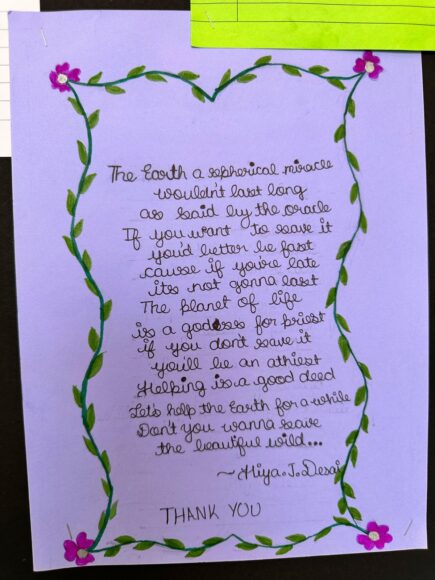 The Earth a sepherical miracle
wouldn't last long
as said by the oracle
If you want to save it
you'd better be fast
cause if you're late
its not gonna last
The planet of life
is a godess for priest
if you don't save it
you'll be an athiest
Helping is a good deed
Let's help the Earth for a while
Don't you wanna save
the beautiful wild...
~Hiya.J.Desai
THANK YOU